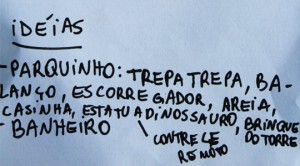 IDÉIAS
-PARQUINHO: TREPA TREPA, BA-
LANÇO, ESCORREGADOR, AREIA,
CASINHA, ESTATUA DINOSSAURO, BRINQUE
DO TORRE
-BANHEIRO
CONTROLE
REMOTO